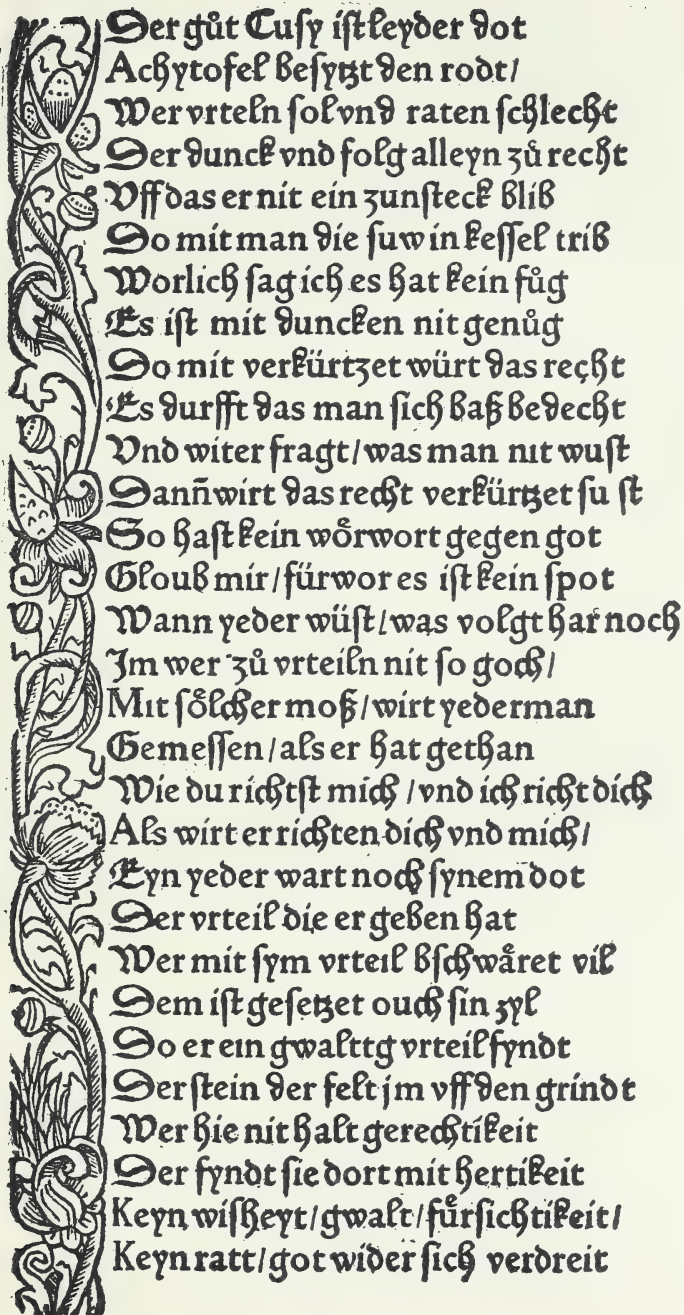 Der gůt Cusy ist leyder dot
Achytofel besytzt den rodt/
Wer vrteln sol vnd raten schlecht
Der dunck vnd folg alleyn zů recht
Vff das er nit ein zunsteck blib
Do mit man die suw in kessel trib
Worlich sag ich es hat kein fůg
Es ist mit duncken nit genůg
Do mit verkürtzet würt das recht
Es durfft das man sich baß bedecht
Vnd witer fragt/ was man nit wust
Dann̄ wirt das recht verkürtzet su st
So hast kein wo᷎rwort gegen got
Gloub mir/ fürwor es ist kein spot
Wann yeder wüst/ was volgt har noch
Im wer zů vrteiln nit so goch/
Mit sölcher moß/ wirt yederman
Gemessen/ als er hat gethan
Wie du richtst mich/ vnd ich richt dich
Als wirt er richten dich vnd mich/
Eyn yeder wart noch synem dot
Der vrteil die er geben hat
Wer mit sym vrteil bschwäret vil
Dem ist gesetzet ouch sin zyl
Do er ein gwalttg vrteil fyndt
Der stein der felt jm vff den grindt
Wer hie nit halt gerechtikeit
Der fyndt sie dort mit hertikeit
Keyn wisheyt/ gwalt/ fürsichtikeit/
Keyn ratt/ got wider sich verdreit